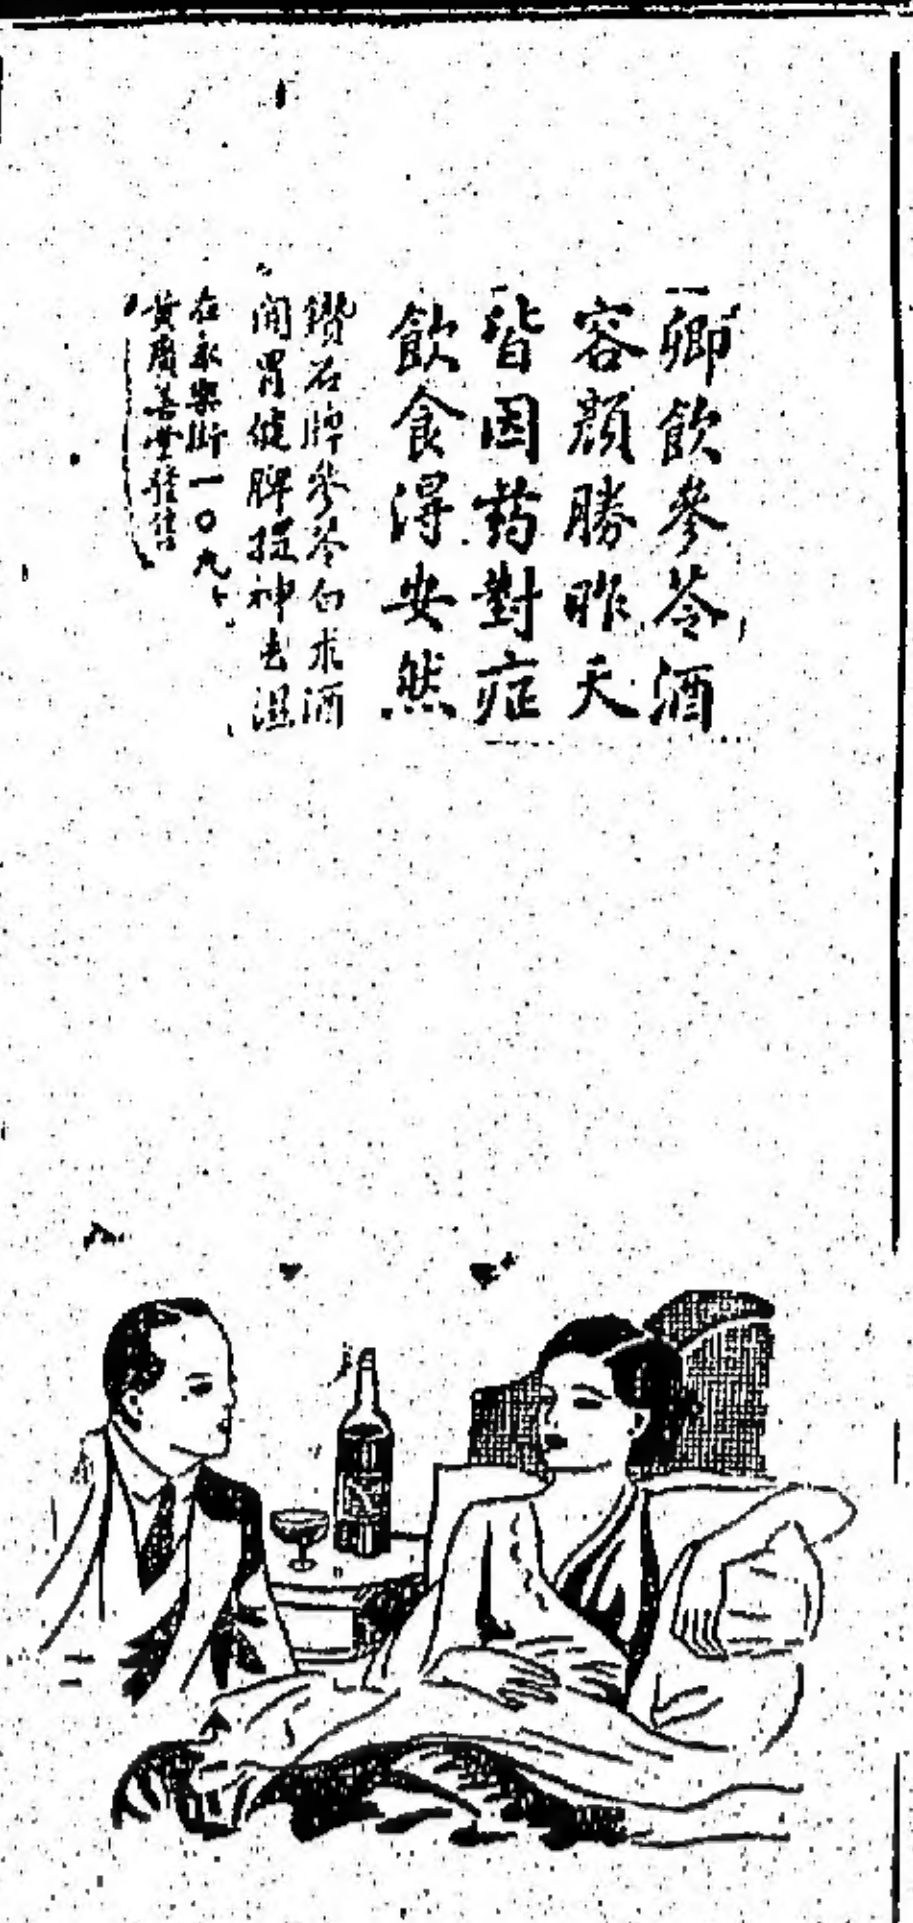 卿飲參苓酒
容顏勝昨天
皆因药對症
飲食得安然
鑽石牌參苓白朮酒
開胃健脾提神去濕
在永樂街一〇九
黃廣善堂發售